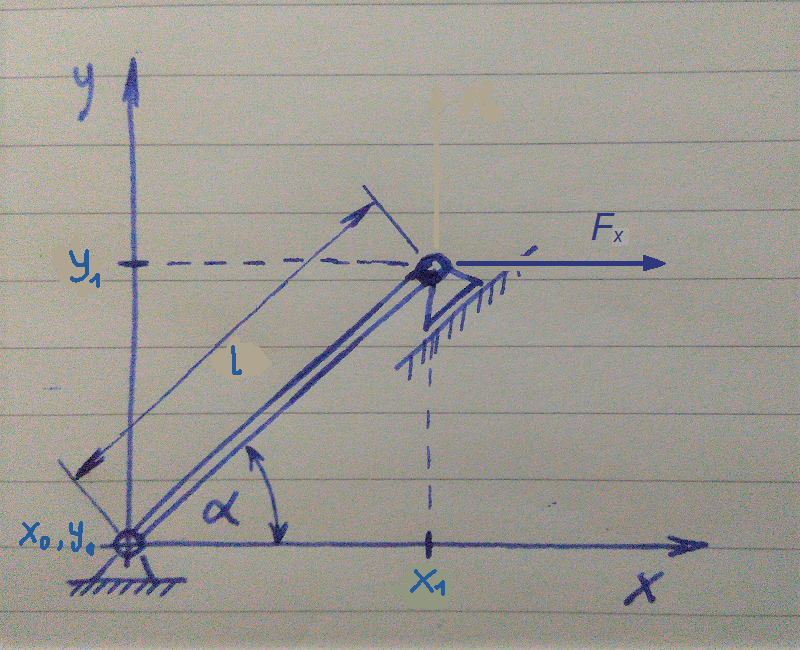 y
F_x
y_1
l
α
x_0, y_0
x_1
x